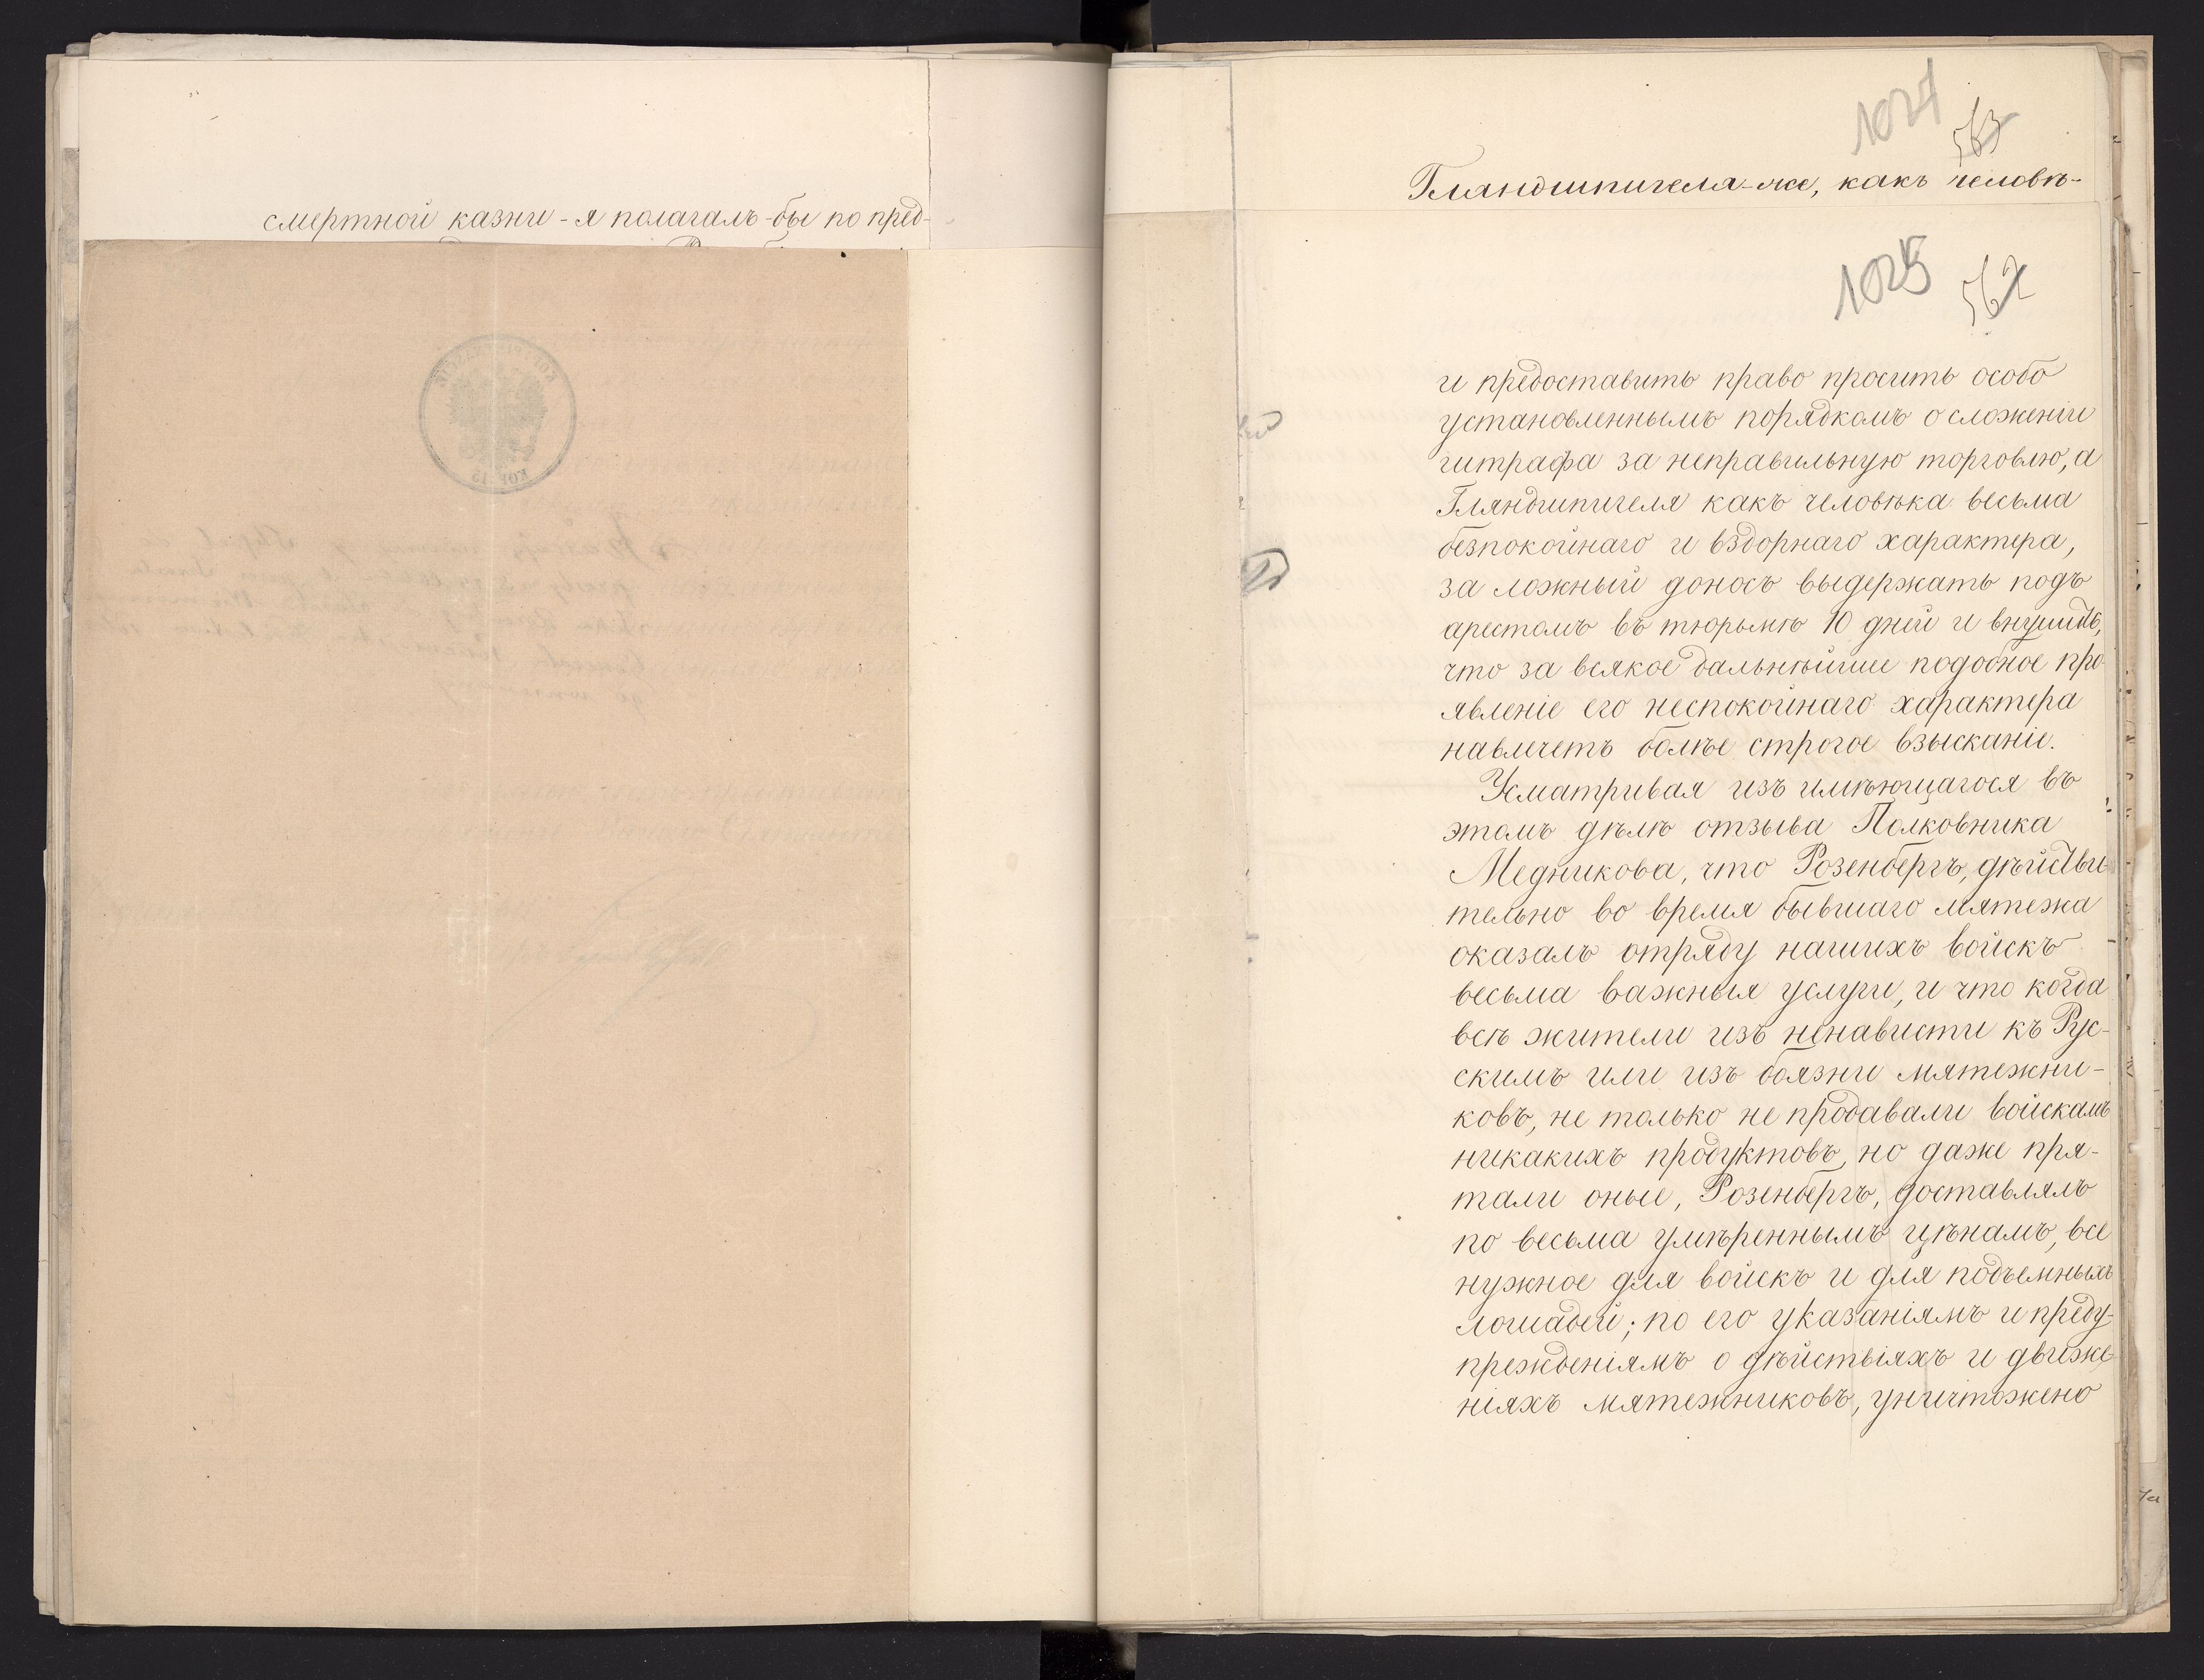 смертной казни - я полагалъ-бы по пред-
1024
563
Гляндшпигеля-же, какъ человѣ-
1025
562
и предоставить право просить особо
установленнымъ порядкомъ о сложеніи
штрафа за неправильную торговлю, а
Гляндшпигеля какъ человѣка весьма
безпокойнаго и вздорнаго характера,
за ложный доносъ выдержать подъ
арестомъ въ тюрьмѣ 10 дней и внушить,
что за всякое дальнѣйшее подобное про-
явленіе его неспокойнаго характера
навлечетъ болѣе строгое взысканіе.
Усматривая изъ имѣющагося въ
этомъ дѣлѣ отзыва Полковника
Медникова, что Розенбергъ, дѣйстви-
тельно во время бывшаго мятежа
оказалъ отряду нашихъ войскъ
весьма важныя услуги, и что когда
всѣ жители изъ ненависти къ Рус-
скимъ или изъ боязни мятежни-
ковъ, не только не продавали войскамъ
никакихъ продуктовъ, но даже пря-
тали оные, Розенбергъ, доставлялъ
по весьма умѣреннымъ цѣнамъ, все
нужное для войскъ и для подъемныхъ
лошадей; по его указаніямъ и преду-
прежденіямъ о дѣйствіяхъ и движе-
ніяхъ мятежниковъ, уничтожено